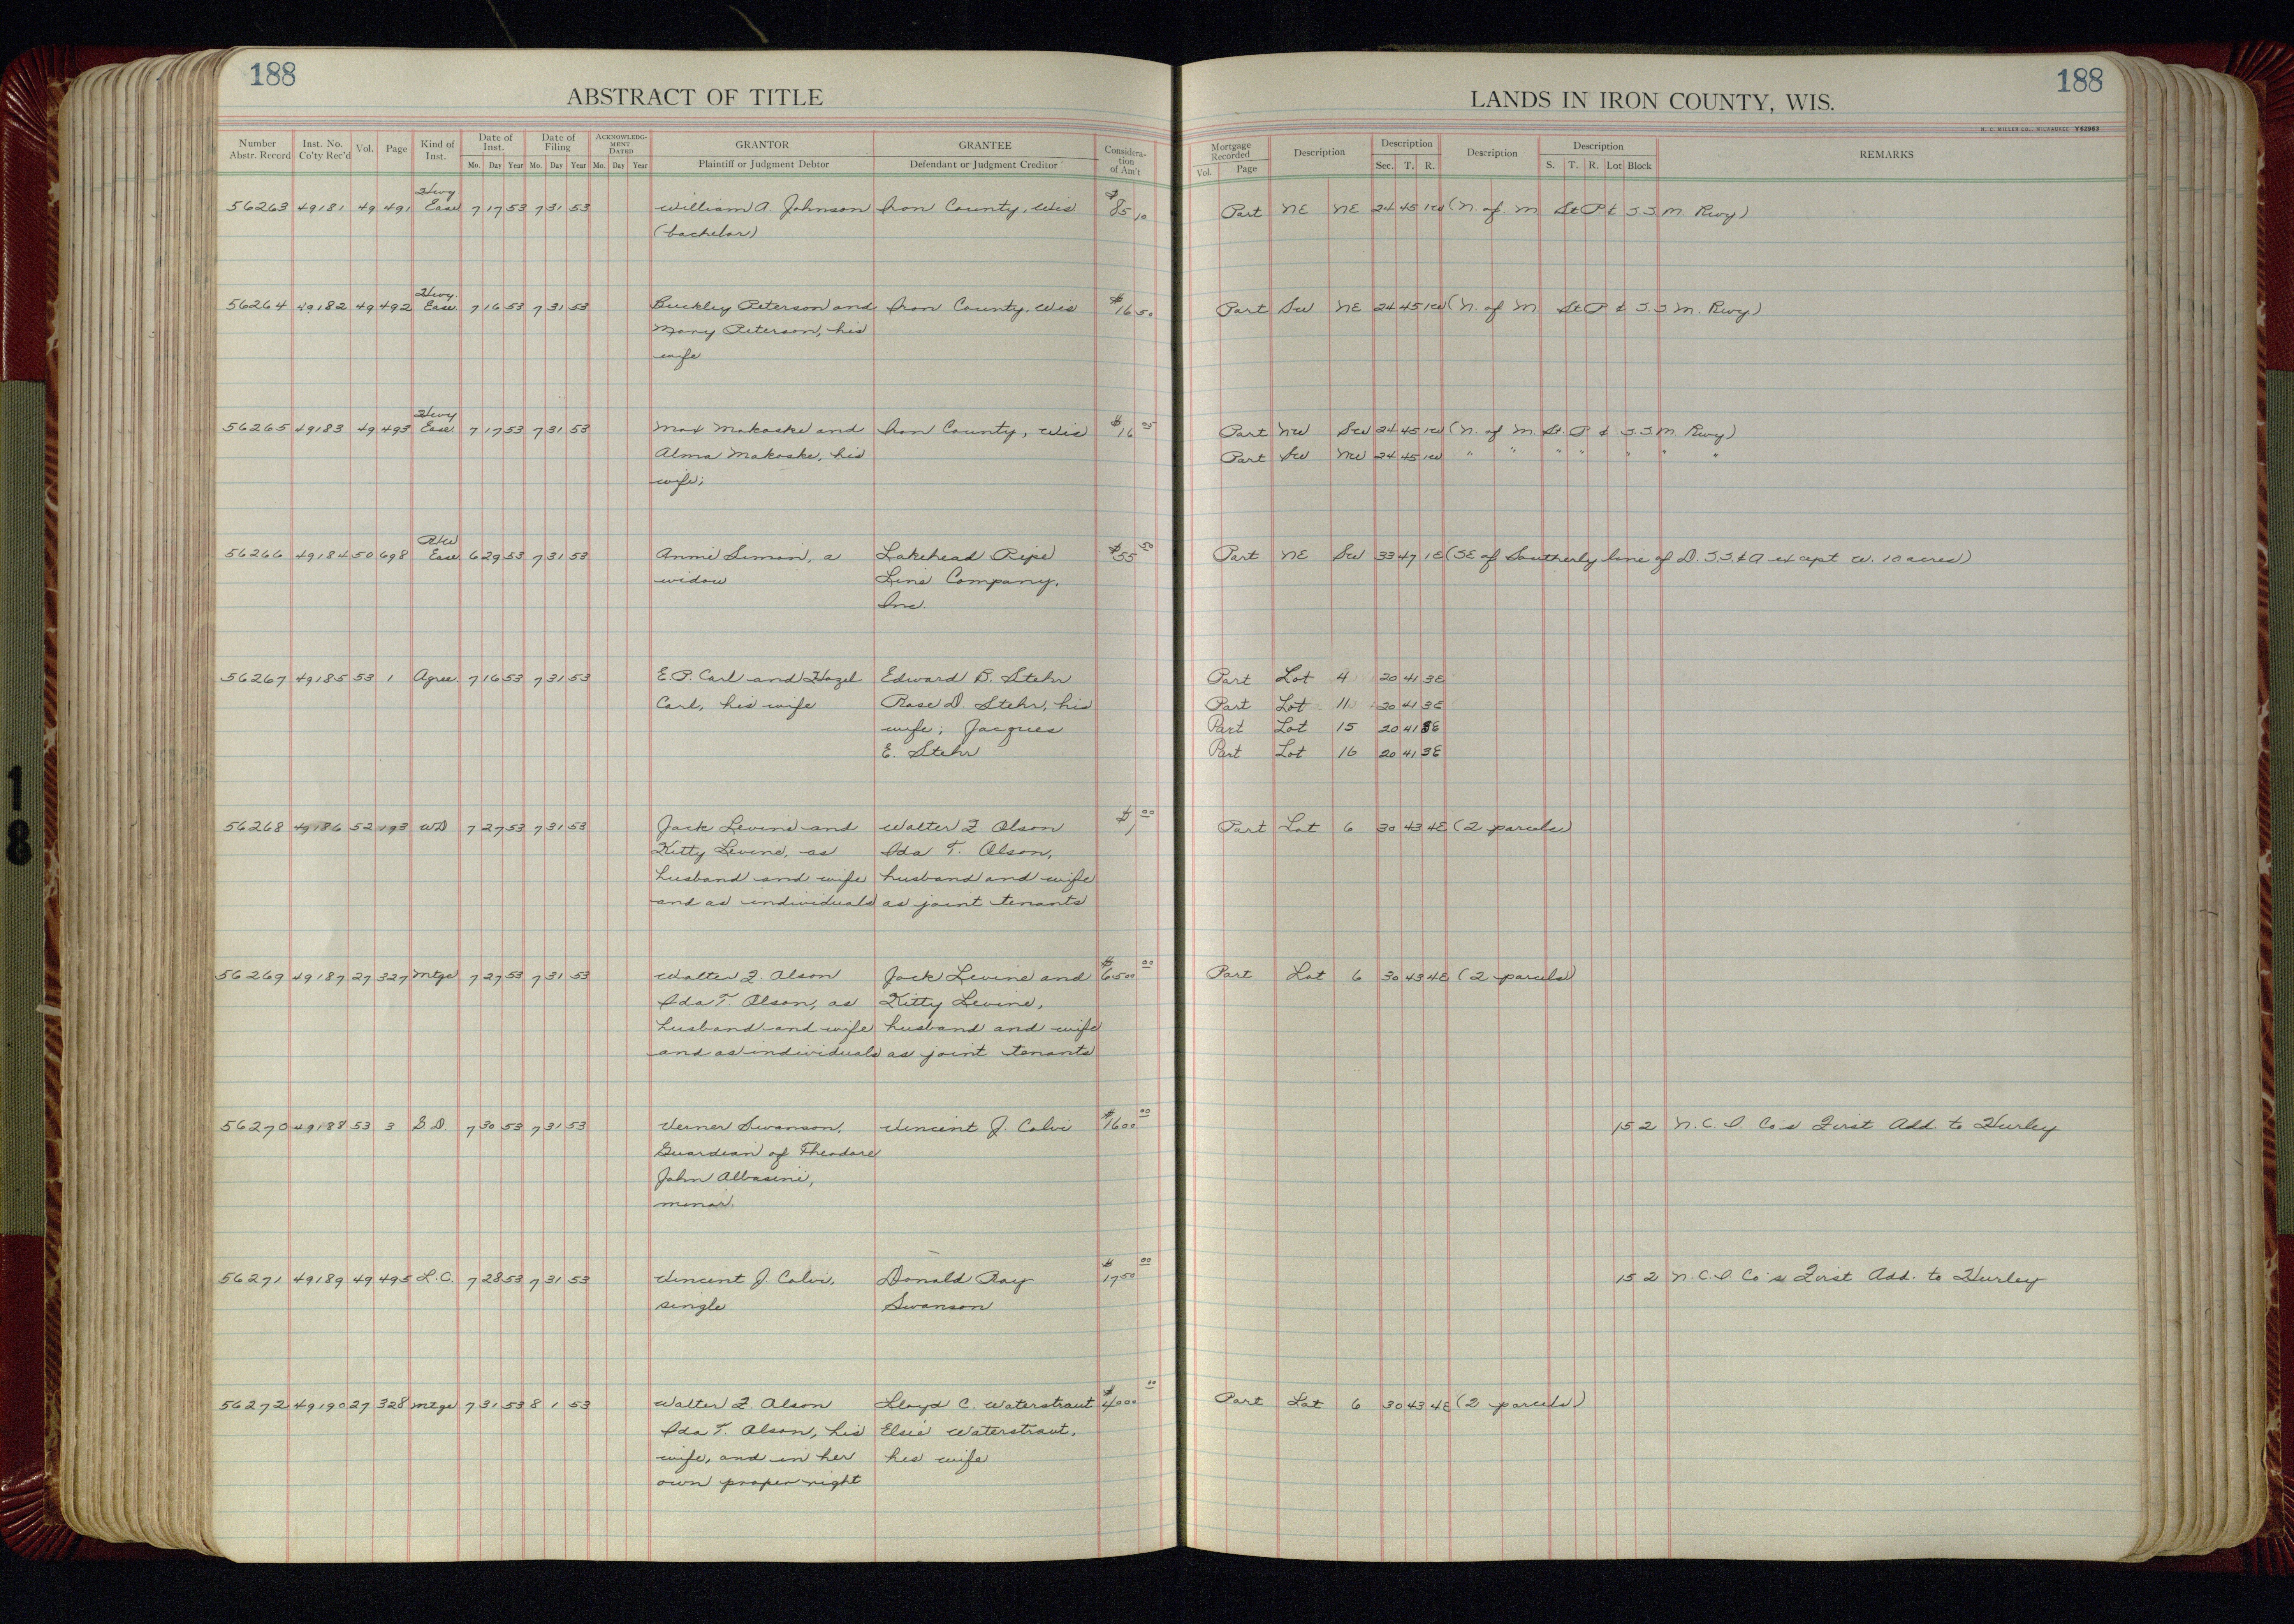 188
ABSTRACT OF TITLE
Number Abstr. Record Inst. No. Co'ty Rec'd Vol. Page Kind of Inst. Date of Inst. Date of Filing ACKNOWLEDGMENT DATED GRANTOR GRANTEE Consideration of Am't
Mo. Day Year Mo. Day Year Mo. Day Year Plaintiff or Judgment Debtor Defendant or Judgment Creditor
Hwy
56263 49181 49 491 Ease 7 17 53 7 31 53 William A. Johnson Iron County, Wis $85 10
(bachelor)
Hwy.
56264 49182 49 492 Ease 7 16 53 7 31 53 Buckley Peterson and Iron County, Wis $16 50
Mary Peterson, his
wife
Hwy
56265 49183 49 493 Ease 7 17 53 7 31 53 Max Makoske and Iron County, Wis $16 05
Alma Makoske, his
wife;
R/W
56266 49184 50 698 Ease 6 29 53 7 31 53 Anni Simon, a Lakehead Pipe $55 50
widow Line Company,
Inc.
56267 49185 53 1 Agree 7 16 53 7 31 53 E.P. Carl and Hazel Edward B. Stehr
Carl, his wife Rose D. Stehr, his
wife; Jacques
E. Stehr
56268 49186 52 193 WD 7 27 53 7 31 53 Jack Levine and Walter F. Olson $1 00
Kitty Levine, as Ida T. Olson,
husband and wife husband and wife
and as individuals as joint tenants
56269 49187 27 327 Mtge 7 27 53 7 31 53 Walter F. Olson Jack Levine and $6500 00
Ida T. Olson, as Kitty Levine,
husband and wife husband and wife
and as individuals as joint tenants
56270 49188 53 3 G D. 7 30 53 7 31 53 Verner Swanson, Vincent J. Calvi $1600 00
Guardian of Theodore
John Albasini,
minor.
56271 49189 49 495 L.C. 7 28 53 7 31 53 Vincent J. Calvi, Donald Ray $1750 00
single Swanson
56272 49190 27 328 Mtge 7 31 53 8 1 53 Walter F. Olson Lloyd C. Waterstraut $4000 00
Ida T. Olson, his Elsie Waterstraut,
wife, and in her his wife
own proper right
188
LANDS IN IRON COUNTY, WIS.
H. C. MILLER CO., MILWAUKEE Y62963
Mortgage Recorded Description Description Description Description REMARKS
Vol. Page Sec. T. R. S. T. R. Lot Block
Part NE NE 24 45 1W (N. of M St P & S.S M. Rwy)
Part SW NE 24 45 1W (N. of M St P & S.S M. Rwy)
Part NW SW 24 45 1W (N. of M. St. P & S.S M Rwy)
Part SW NW 24 45 1W " " " " " " "
Part NE SW 33 47 1E (SE of Southerly line of D. S.S. & A except W. 10 acres)
Part Lot 4 20 41 3E
Part Lot 11 20 41 3E
Part Lot 15 20 41 3E
Part Lot 16 20 41 3E
Part Lot 6 30 43 4E (2 parcels)
Part Lot 6 30 43 4E (2 parcels)
15 2 N. C. I. Co's First Add. to Hurley
15 2 N. C. I. Co's First Add. to Hurley
Part Lot 6 30 43 4E (2 parcels)
18